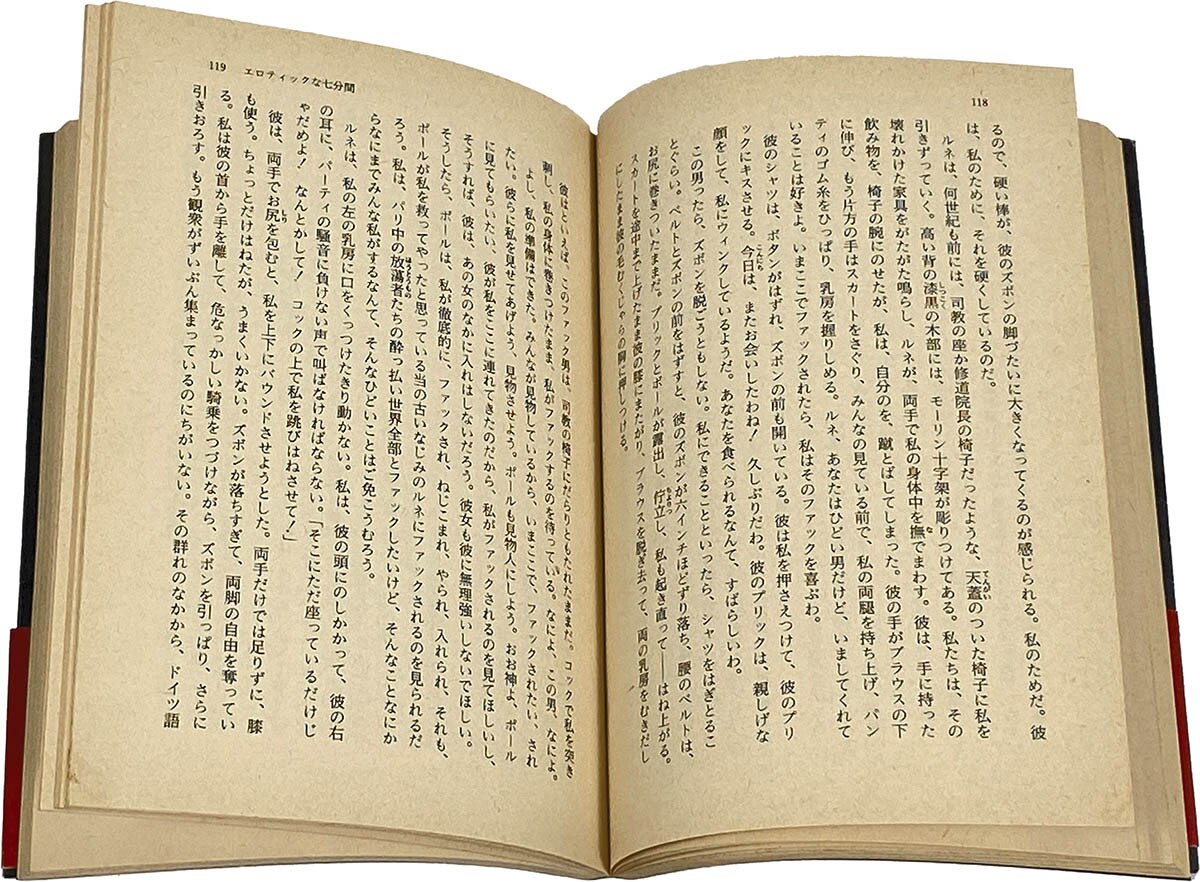 118
るので、硬い棒が、彼のズボンの脚づたいに大きくなってくるのが感じられる。私のためだ。彼
は、私のために、それを硬くしているのだ。
ルネは、何世紀も前には、司教の座か修道院長の椅子だったような、天蓋のついた椅子に私を
引きずっていく。高い背の漆黒の木部には、モーリン十字架が彫りつけてある。私たちは、その
壊れかけた家具をがたがた鳴らし、ルネが、両手で私の身体中を撫でまわす。彼は、手に持った
飲み物を、椅子の腕にのせたが、私は、自分のを、蹴とばしてしまった。彼の手がブラウスの下
に伸び、もう片方の手はスカートをさぐり、みんなの見ている前で、私の両腿を持ち上げ、パン
ティのゴム糸をひっぱり、乳房を握りしめる。ルネ、あなたはひどい男だけど、いましてくれて
いることは好きよ。いまここでファックされたら、私はそのファックを喜ぶわ。
彼のシャツは、ボタンがはずれ、ズボンの前も開いている。彼は私を押さえつけて、彼のプリ
ックにキスさせる。今日は、またお会いしたわね！　久しぶりだわ。彼のプリックは、親しげな
顔をして、私にウィンクしているようだ。あなたを食べられるなんて、すばらしいわ。
この男ったら、ズボンを脱ごうともしない。私にできることといったら、シャツをはぎとるこ
とぐらい。ベルトとズボンの前をはずすと、彼のズボンが六インチほどずり落ち、腰のベルトは、
お尻に巻きついたままだ。プリックとボールが露出し、佇立し、私も起き直って――はね上がる。
スカートを途中まで上げたまま彼の腰にまたがり、ブラウスを脱ぎ去って、両の乳房をむきだし
にしたまま彼の毛むくじゃらの胸に押しつける。
119　エロティックな七分間
彼はといえば、このファック男は、司教の椅子にだらりともたれたままだ。コックで私を突き
刺し、私の身体に巻きつけたまま、私がファックするのを待っている。なによ、この男、なによ。
よし、私の準備はできた。みんなが見物しているから、いまここで、ファックされたい、され
たい。彼らに私を見せてあげよう、見物させよう。ポールも見物人にしよう。おお神よ、ポール
に見てもらいたい、彼が私をここに連れてきたのだから、私がファックされるのを見てほしいし、
そうすれば、彼は、あの女のなかに入れはしないだろう。彼女も彼に無理強いしないでほしい。
そうしたら、ポールは、私が徹底的に、ファックされ、ねじこまれ、やられ、入れられ、それも、
ポールが私を救ってやったと思っている当の古いなじみのルネにファックされるのを見られるだ
ろう。私は、パリ中の放蕩者たちの酔っ払い世界全部とファックしたいけど、そんなことなにか
らなにまでみんな私がするなんて、そんなひどいことはご免こうむろう。
ルネは、私の左の乳房に口をくっつけたきり動かない。私は、彼の頭にのしかかって、彼の右
の耳に、パーティの騒音に負けない声で叫ばなければならない。「そこにただ座っているだけじ
ゃだめよ！　なんとかして！　コックの上で私を跳びはねさせて！」
彼は、両手でお尻を包むと、私を上下にバウンドさせようとした。両手だけでは足りずに、膝
も使う。ちょっとだけはねたが、うまくいかない。ズボンが落ちすぎて、両脚の自由を奪ってい
る。私は彼の首から手を離して、危なっかしい騎乗をつづけながら、ズボンを引っぱり、さらに
引きおろす。もう観衆がずいぶん集まっているのにちがいない。その群れのなかから、ドイツ語